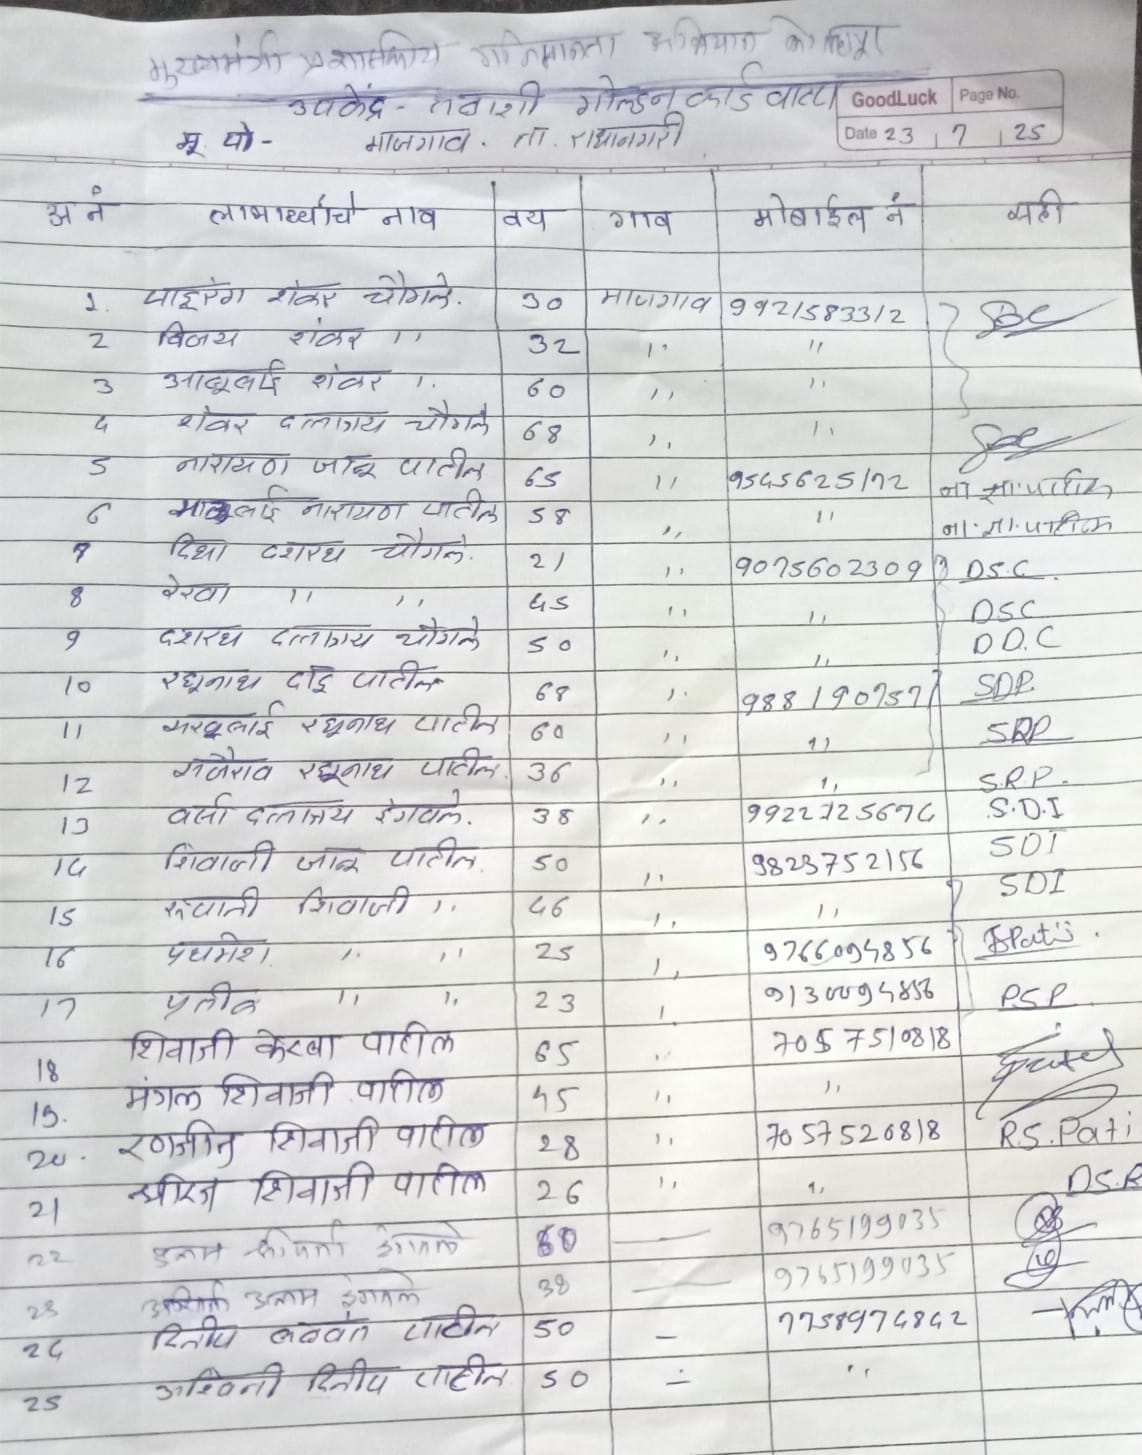 मुख्यमंत्री प्रशासकीय गतिमानता अभियान कोल्हापूर
उपकेंद्र - तळाशी गोल्डन कार्ड वाटप
GoodLuck Page No.
Date 23 7 25
मू. पो - माजगाव. ता. राधानगरी
अ नं लाभार्थ्याचे नाव वय गाव मोबाईल नं सही
1. पांडूरंग शंकर चौगले. 30 माजगाव 9921583312
2 विजय शंकर '' 32 '' ''
3 आक्कूबाई शंकर '' 60 '' ''
4 शंकर दत्तात्रय चौगले 68 '' ''
5 नारायण जाकू पाटील 65 '' 9545625172 ना ज्ञा. पाटील
6 नारायण पाटील 58 '' '' ना. ज्ञा. पाटील
7 दिक्षा दशरथ चौगले. 21 '' 9075602309 D.S.C.
8 रेखा '' '' 45 '' '' DSC
9 दशरथ दत्तात्रय चौगले 50 '' '' D D.C
10 रघूनाथ दादू पाटील 68 '' 9881190757 SDP.
11 रघूनाथ पाटील 60 '' '' SRP
12 सर्जेराव रघूनाथ पाटील. 36 '' '' S.R.P.
13 वर्षा दत्तात्रय इंगवले. 38 '' 9922725674 S.D.I
14 शिवाजी जाकू पाटील. 50 '' 9823752156 SDI
15 रुपाली शिवाजी '' 46 '' '' SDI
16 प्रथमेश '' '' 25 '' 9766094856
17 प्रतीक '' '' 23 '' 9130094856 P.S.P.
18 शिवाजी केरबा पाटील 65 '' 7057510818
19. मंगल शिवाजी पाटील 45 '' ''
20. रणजीत शिवाजी पाटील 28 '' 7057520818 R.S. Pati
21 धीरज शिवाजी पाटील 26 '' '' DS.R
22 60 — 9765199035
23 इंगवले 38 — 9765199035
24 दिलीप बळवंत पाटील 50 — 7758974842
25 अश्विनी दिलीप पाटील. 50 — ''